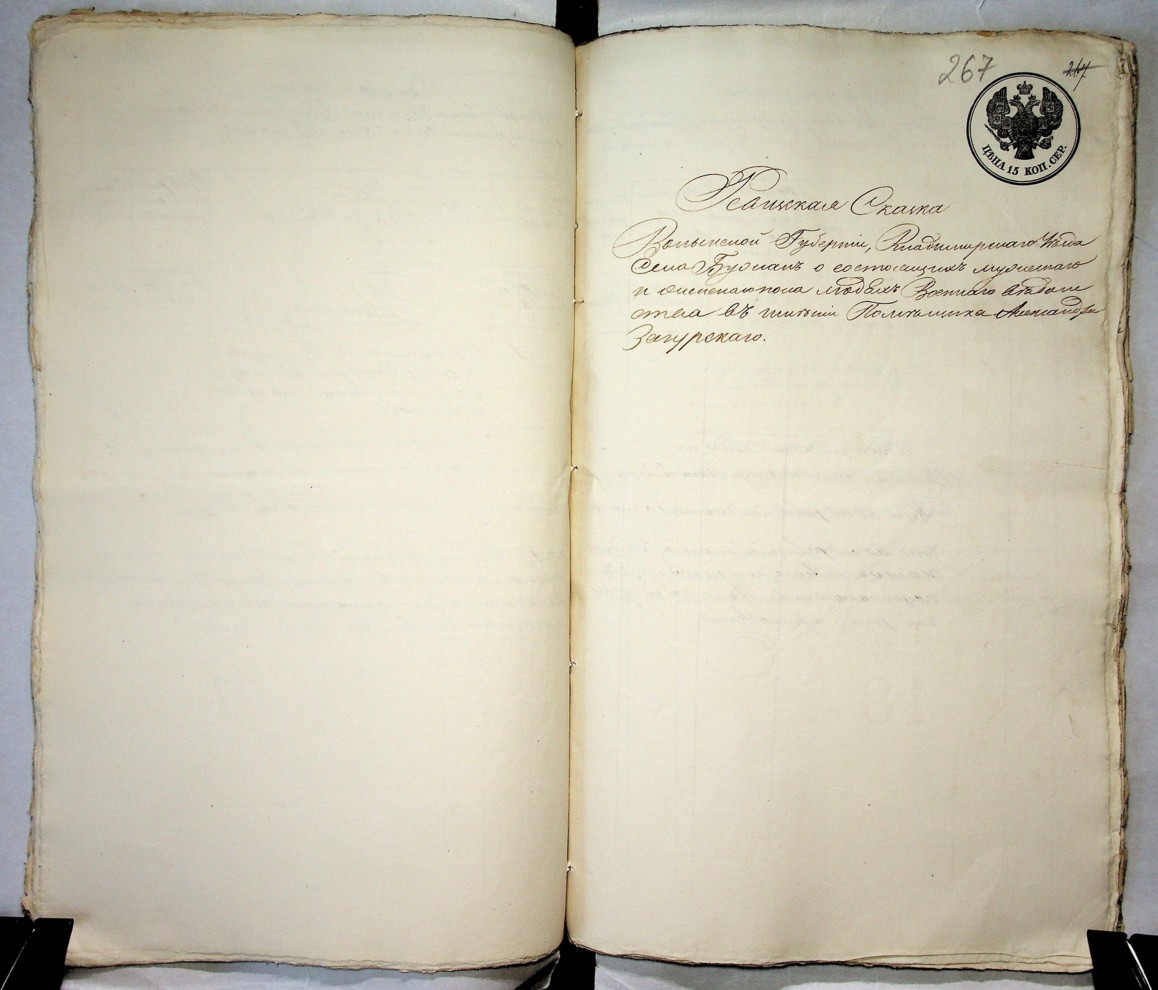 267
267
ЦѢНА 15 КОП. СЕР.
Скаска
Волынской Губерніи, Владимирскаго Уѣзда
Села Бужанъ о состоящихъ мужескаго
и женскаго пола людѣхъ Военнаго вѣдом
ства въ имѣніи Помѣщика Александра
Загурскаго.